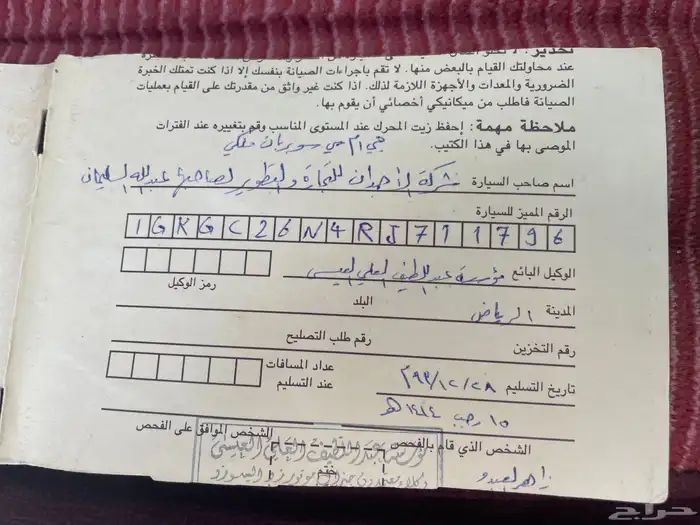 عند محاولتك القيام بالبعض منها. لا تقم باجراءات الصيانة بنفسك إلا اذا كنت تمتلك الخبرة
الضرورية والمعدات والأجهزة اللازمة لذلك. اذا كنت غير واثق من مقدرتك على القيام بعمليات
الصيانة فاطلب من ميكانيكي أخصائي أن يقوم بها.
ملاحظة مهمة: إحفظ زيت المحرك عند المستوى المناسب وقم بتغييره عند الفترات
الموصى بها في هذا الكتيب. جي ام سي سوبربان ملكي
اسم صاحب السيارة شركة الأحمدان للتجارة والتطوير لصاحبها عبدالله السليمان
الرقم المميز للسيارة
1GKGC26N4RJ711796
الوكيل البائع مؤسسة عبداللطيف العلي العيسى
رمز الوكيل
المدينة الرياض البلد
رقم التخزين رقم طلب التصليح
تاريخ التسليم ٩٣/١٢/٢٨م عداد المسافات عند التسليم
١٥ رجب ١٤١٤هـ
الشخص الذي قام بالفحص الشخص الموافق على الفحص
مؤسسة عبداللطيف العلي العيسى
ختم